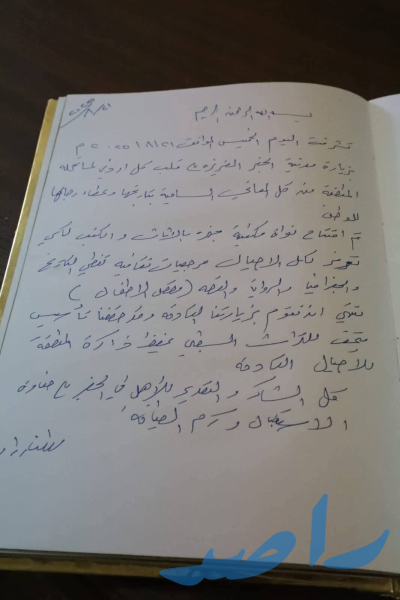 بسم الله الرحمن الرحيم
تشرفت اليوم الخميس الموافق ٢٠٢٥/٨/٢١ م
بزيارة مدينة الجفر العزيزة قلب كل اردني لما تحمله
المنطقة من كل المعاني السامية بتاريخها وعطاء رجالها
للوطن
تم افتتاح نواة مكتبة بالشباب و الكتب لكي
لكل الاجيال مرجعيات ثقافية تغطي التاريخ
والجغرافيا والرواية والقصة (وقصص الاطفال)
ان نقوم بزيارتنا القادمة وقد تأسيس
متحف للتراث الشعبي يحفظ ذاكرة المنطقة
للاجيال القادمة
كل الشكر و التقدير للأهل في الجفر ع حفاوة
الاستقبال وكرم الضيافة
راصد